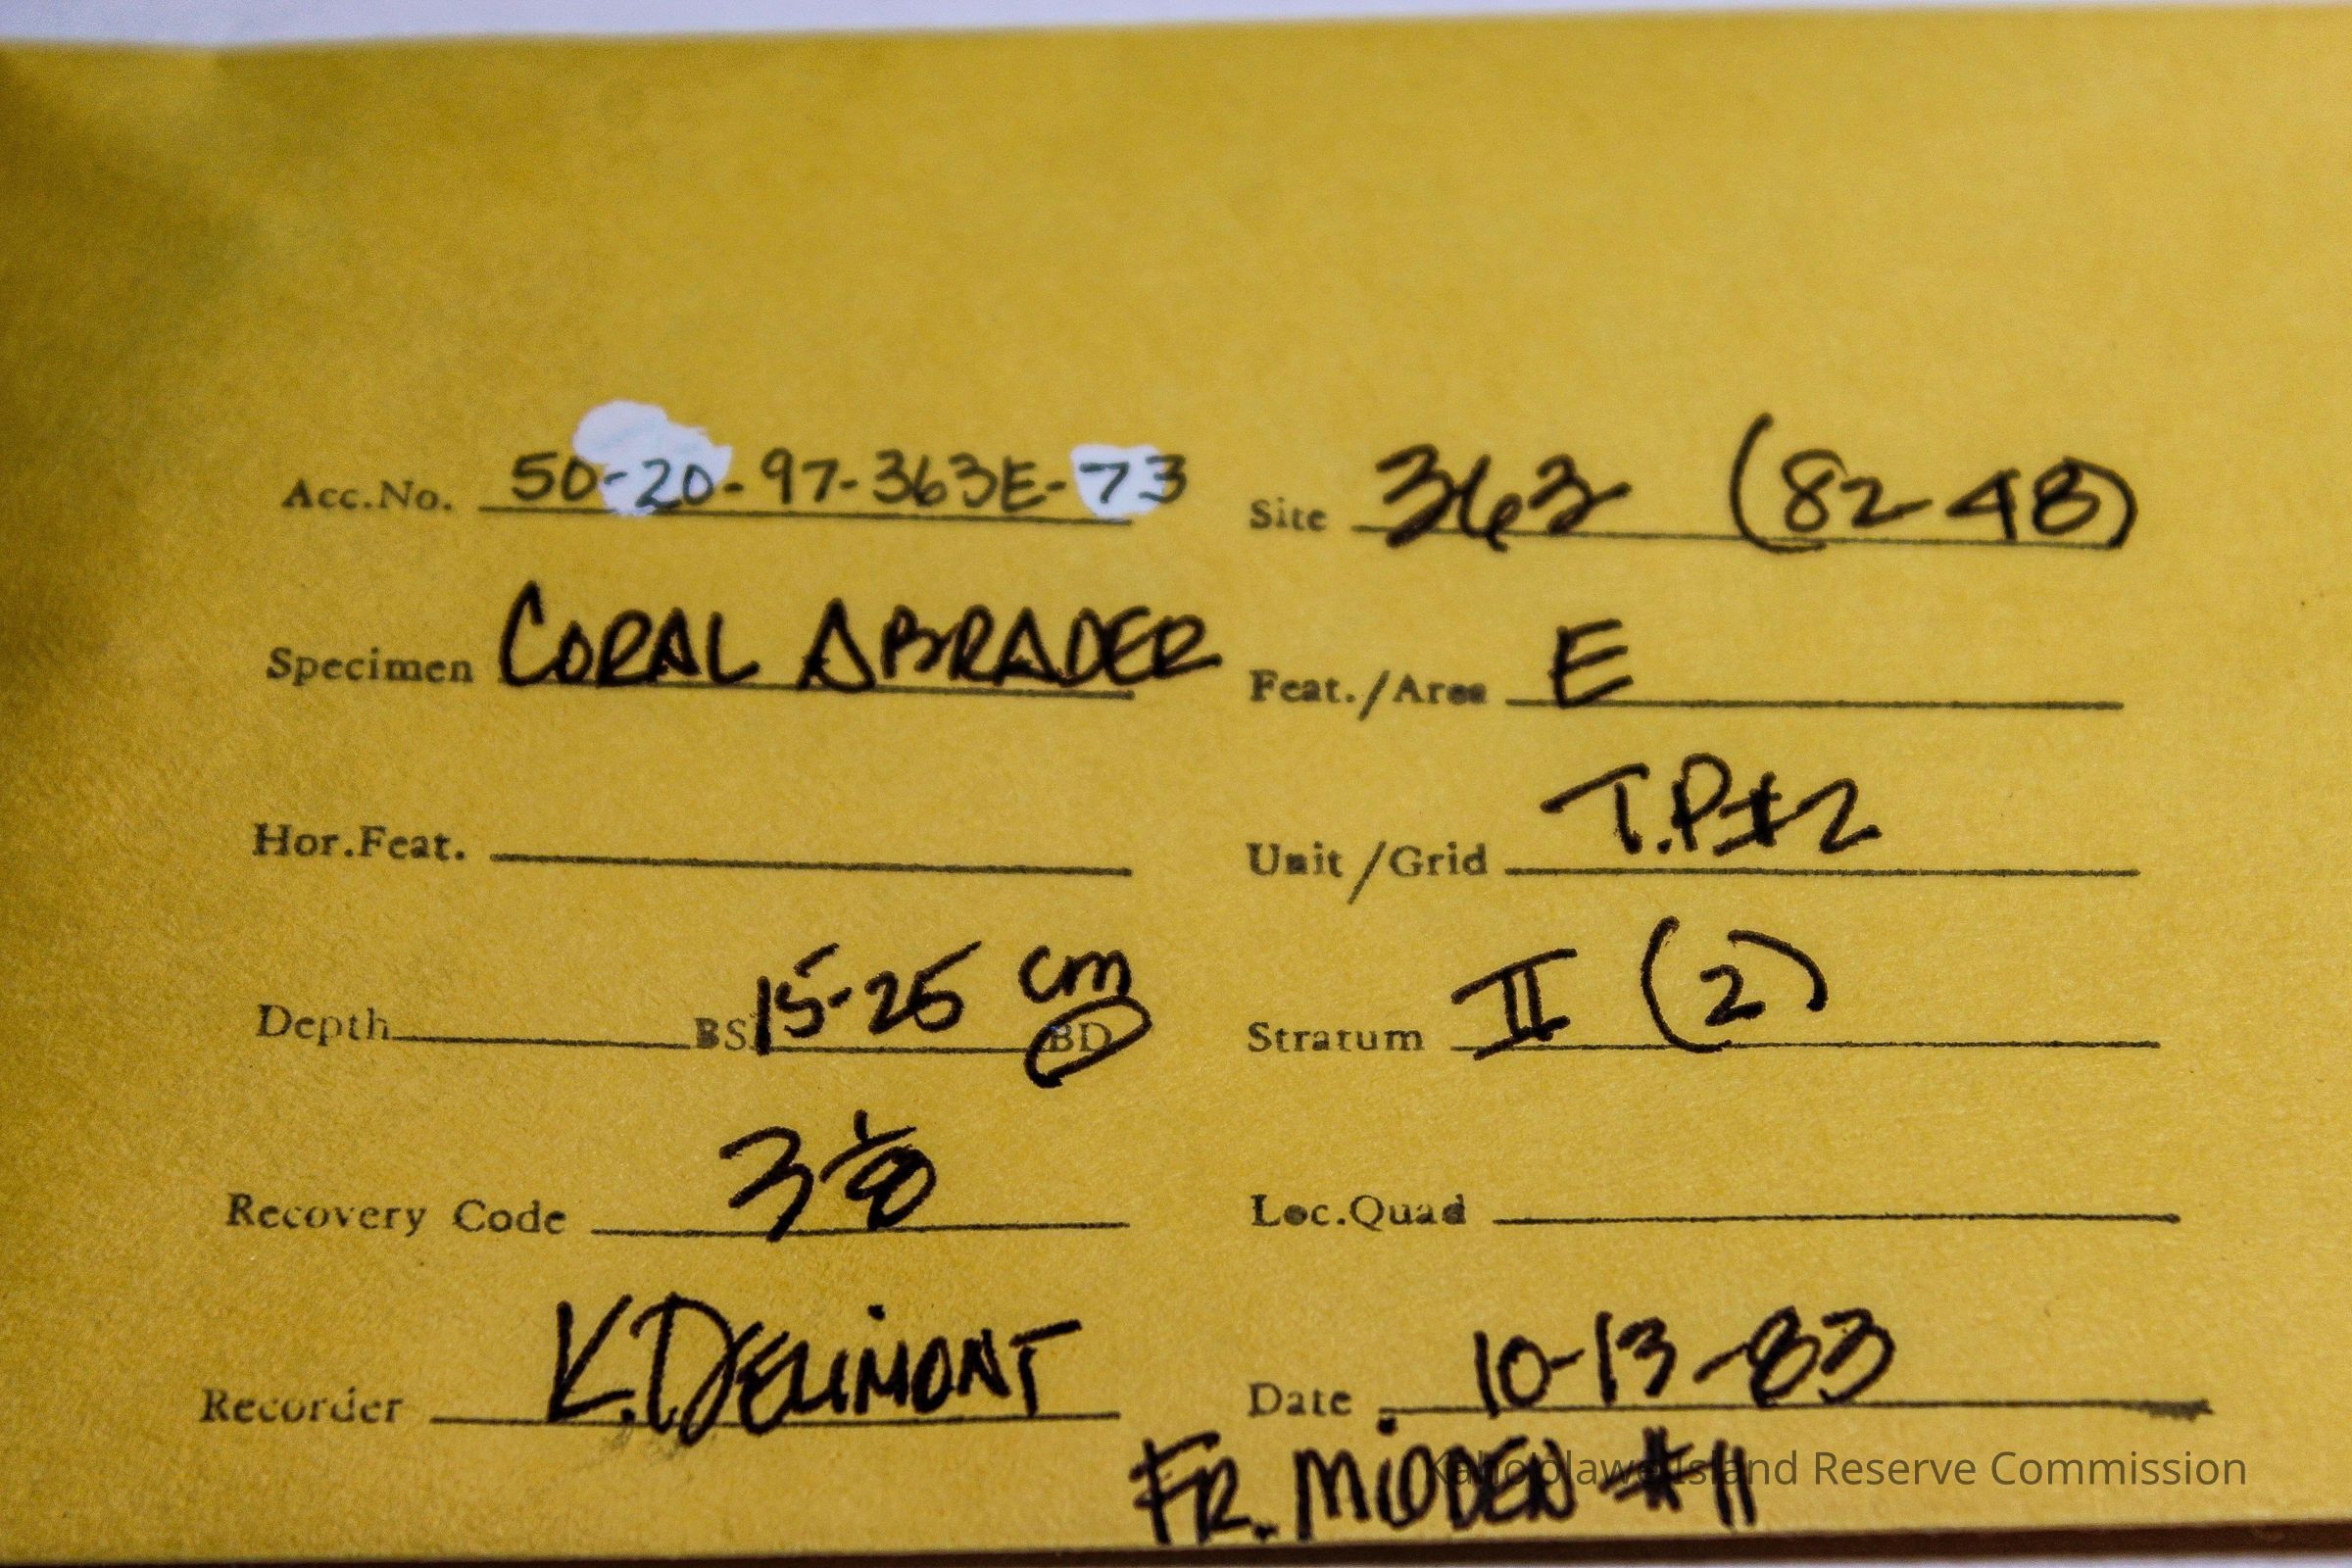 Acc.No. 50-20-97-363E-73 Site 363 (82-48)
Specimen CORAL ABRADER Feat./Area E
Hor.Feat. Unit/Grid T.P.#2
Depth BS 15-25 cm BD Stratum II (2)
Recovery Code 3 1/8 Loc.Quad
Recorder K. DELIMONT Date 10-13-83
FR. MIDDEN #11
Island Reserve Commission